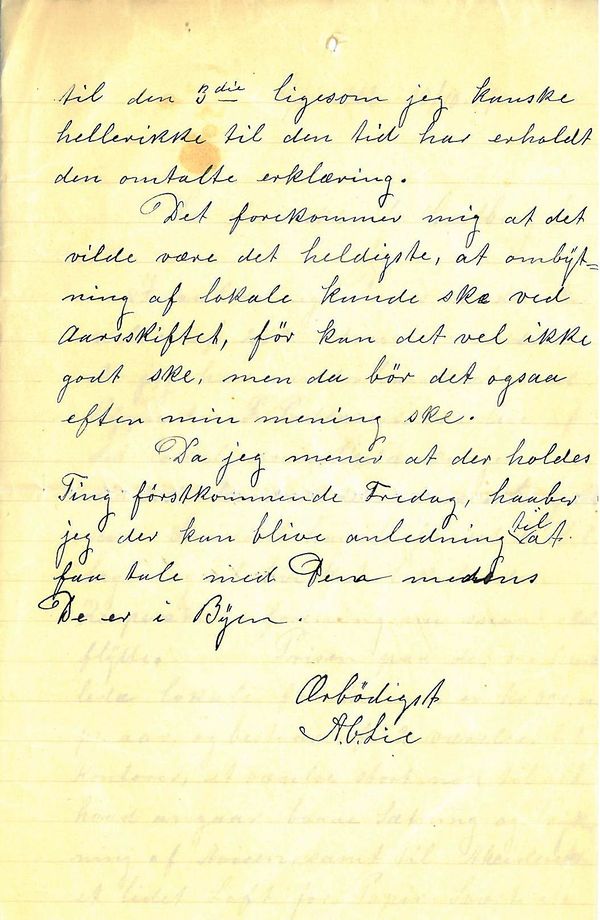 til den 3die ligesom jeg kanske
hellerikke til den tid har erholdt
den omtalte erklæring.
Det forekommer mig at det
vilde være det heldigste, at ombÿt=
ning af lokale kunde ske ved
Aarsskiftet, för kan det vel ikke
godt ske, men da bör det ogsaa
efter min mening ske.
Da jeg mener at der holdes
Ting förstkommende Fredag, haaber
jeg der kan blive anledning til at
faa tale med Dem medens
De er i Bÿen.
Ærbödigst
A.C. Lie